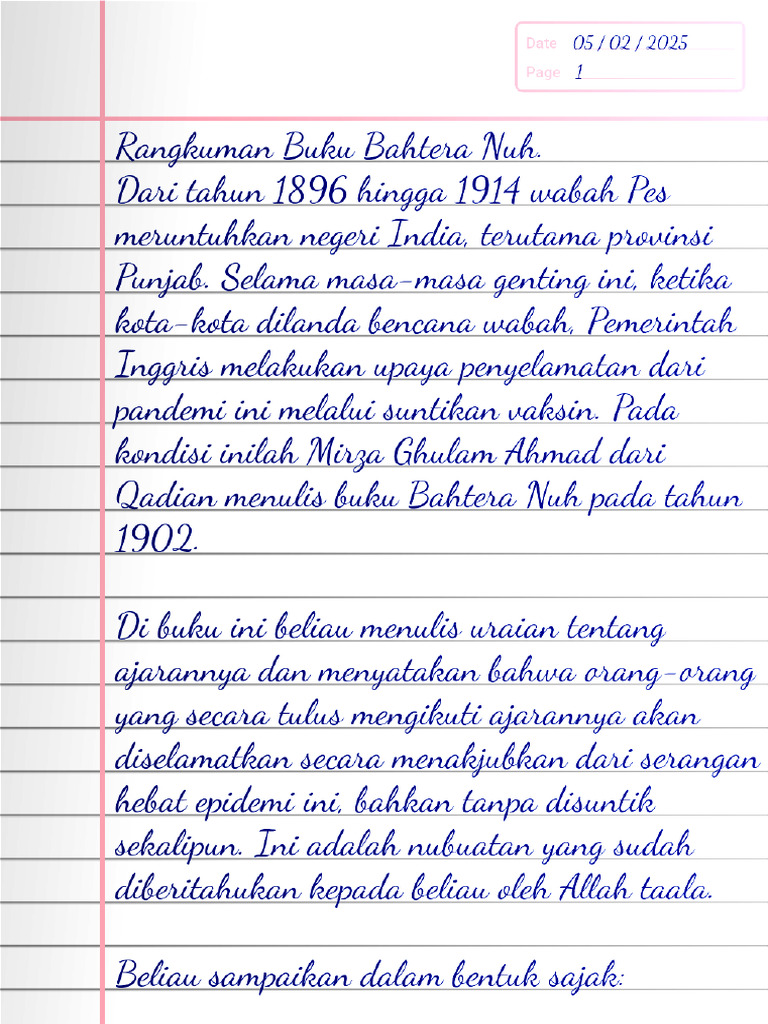 Date 05 / 02 / 2025
Page 1
Rangkuman Buku Bahtera Nuh.
Dari tahun 1896 hingga 1914 wabah Pes
meruntuhkan negeri India, terutama provinsi
Punjab. Selama masa-masa genting ini, ketika
kota-kota dilanda bencana wabah, Pemerintah
Inggris melakukan upaya penyelamatan dari
pandemi ini melalui suntikan vaksin. Pada
kondisi inilah Mirza Ghulam Ahmad dari
Qadian menulis buku Bahtera Nuh pada tahun
1902.
Di buku ini beliau menulis uraian tentang
ajarannya dan menyatakan bahwa orang-orang
yang secara tulus mengikuti ajarannya akan
diselamatkan secara menakjubkan dari serangan
hebat epidemi ini, bahkan tanpa disuntik
sekalipun. Ini adalah nubuatan yang sudah
diberitahukan kepada beliau oleh Allah taala.
Beliau sampaikan dalam bentuk sajak: